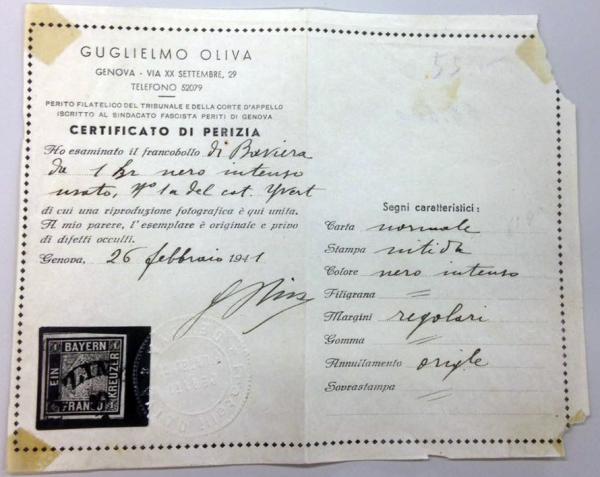 GUGLIELMO OLIVA
GENOVA - VIA XX SETTEMBRE, 29
TELEFONO 52079
PERITO FILATELICO DEL TRIBUNALE E DELLA CORTE D'APPELLO
ISCRITTO AL SINDACATO FASCISTA PERITI DI GENOVA
CERTIFICATO DI PERIZIA
Ho esaminato il francobollo di Baviera
da 1 kr nero intenso
usato, Nº 1a del cat. Yvert
di cui una riproduzione fotografica è qui unita.
A mio parere, l'esemplare è originale e privo
di difetti occulti.
Genova, 26 febbraio 1941
BAYERN
EIN
KREUZER
FRANCO
55
Segni caratteristici:
Carta normale
Stampa nitida
Colore nero intenso
Filigrana =
Margini regolari
Gomma =
Annullamento origle
Sovrastampa =